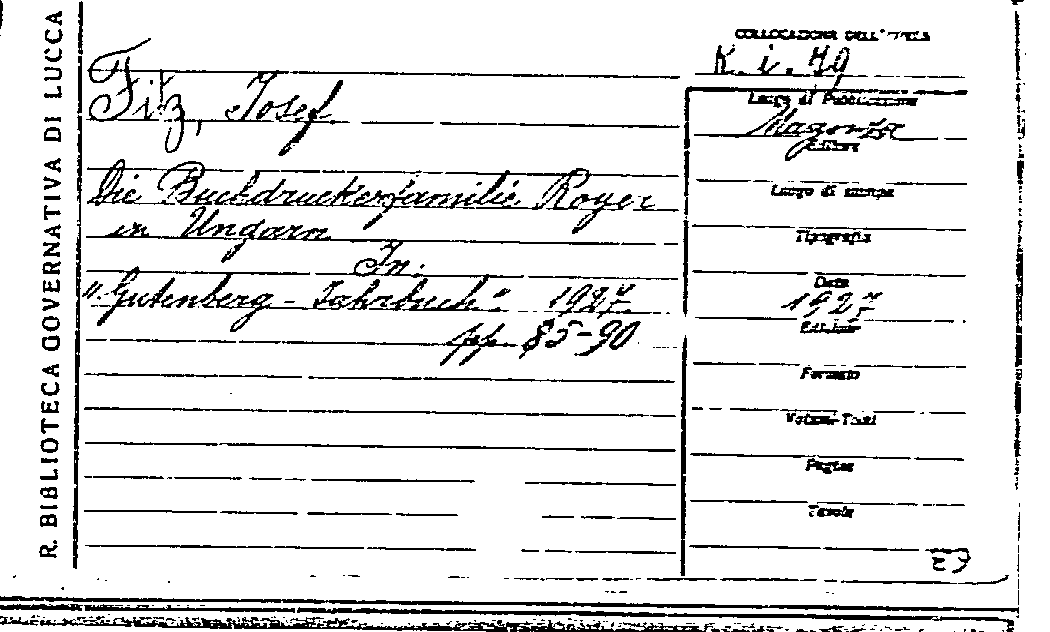 R. BIBLIOTECA GOVERNATIVA DI LUCCA
COLLOCAZIONE DELL'OPERA
K. i. 79
Fitz, Josef.
Die Buchdruckerfamilie Royer
in Ungarn
In:
"Gutenberg - Jahrbuch" 1927.
pp. 85-90
Luogo di Pubblicazione
Magonza
Editore
Luogo di stampa
Tipografia
Data
1927
Edizione
Formato
Volumi-Tomi
Pagine
Tavole